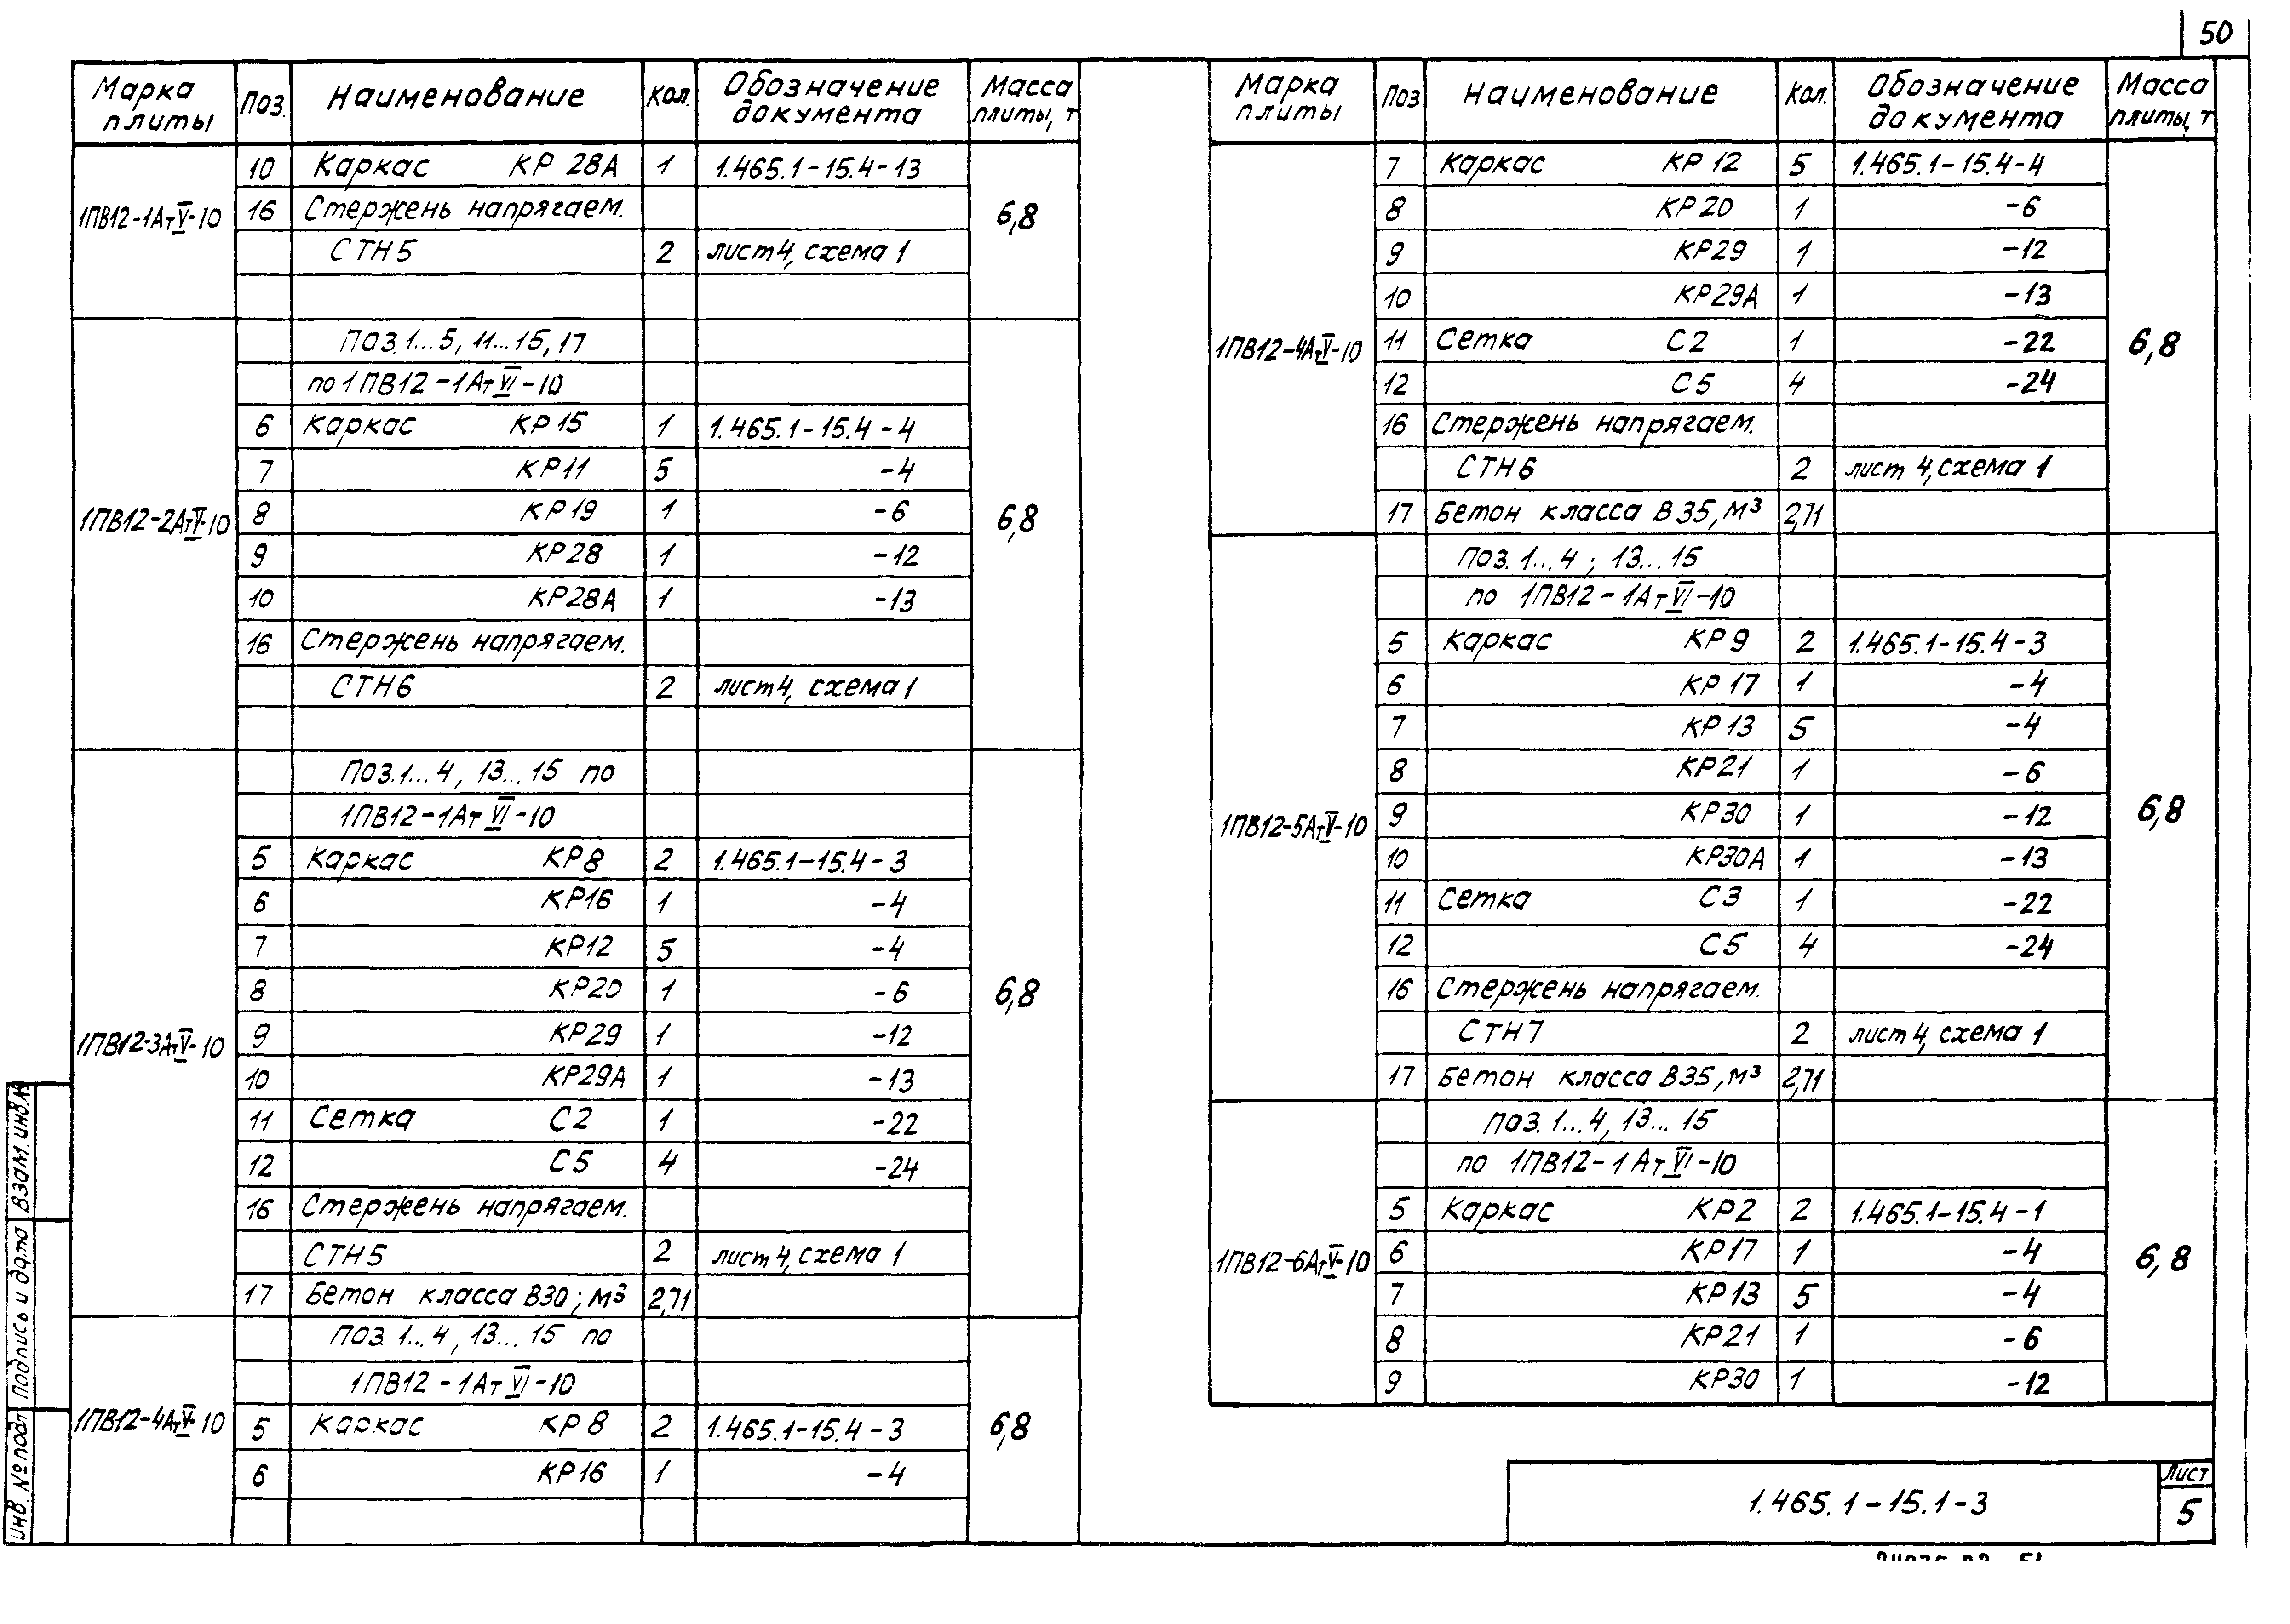 50
Марка плиты | Поз. | Наименование | Кол. | Обозначение документа | Масса плиты, т
1ПВ12-1АтV-10 | 6,8
10 | Каркас КР 28А | 1 | 1.465.1-15.4-13
16 | Стержень напрягаем.
СТН5 | 2 | лист 4, схема 1
1ПВ12-2АтV-10 | 6,8
Поз. 1...5, 11...15, 17
по 1ПВ12-1АтVI-10
6 | Каркас КР15 | 1 | 1.465.1-15.4-4
7 | КР11 | 5 | -4
8 | КР19 | 1 | -6
9 | КР28 | 1 | -12
10 | КР28А | 1 | -13
16 | Стержень напрягаем.
СТН6 | 2 | лист 4, схема 1
1ПВ12-3АтV-10 | 6,8
Поз. 1...4, 13...15 по
1ПВ12-1АтVI-10
5 | Каркас КР8 | 2 | 1.465.1-15.4-3
6 | КР16 | 1 | -4
7 | КР12 | 5 | -4
8 | КР20 | 1 | -6
9 | КР29 | 1 | -12
10 | КР29А | 1 | -13
11 | Сетка С2 | 1 | -22
12 | С5 | 4 | -24
16 | Стержень напрягаем.
СТН5 | 2 | лист 4, схема 1
17 | Бетон класса В30; м³ | 2,71
1ПВ12-4АтV-10 | 6,8
Поз. 1...4, 13...15 по
1ПВ12-1АтVI-10
5 | Каркас КР8 | 2 | 1.465.1-15.4-3
6 | КР16 | 1 | -4
Марка плиты | Поз | Наименование | Кол. | Обозначение документа | Масса плиты, т
1ПВ12-4АтV-10 | 6,8
7 | Каркас КР12 | 5 | 1.465.1-15.4-4
8 | КР20 | 1 | -6
9 | КР29 | 1 | -12
10 | КР29А | 1 | -13
11 | Сетка С2 | 1 | -22
12 | С5 | 4 | -24
16 | Стержень напрягаем.
СТН6 | 2 | лист 4, схема 1
17 | Бетон класса В35, м³ | 2,71
1ПВ12-5АтV-10 | 6,8
Поз. 1...4; 13...15
по 1ПВ12-1АтVI-10
5 | Каркас КР9 | 2 | 1.465.1-15.4-3
6 | КР17 | 1 | -4
7 | КР13 | 5 | -4
8 | КР21 | 1 | -6
9 | КР30 | 1 | -12
10 | КР30А | 1 | -13
11 | Сетка С3 | 1 | -22
12 | С5 | 4 | -24
16 | Стержень напрягаем.
СТН7 | 2 | лист 4, схема 1
17 | Бетон класса В35, м³ | 2,71
1ПВ12-6АтV-10 | 6,8
Поз. 1...4, 13...15
по 1ПВ12-1АтVI-10
5 | Каркас КР2 | 2 | 1.465.1-15.4-1
6 | КР17 | 1 | -4
7 | КР13 | 5 | -4
8 | КР21 | 1 | -6
9 | КР30 | 1 | -12
1.465.1-15.1-3
Лист
5
Инв. № подл
Подпись и дата
Взам. инв. №